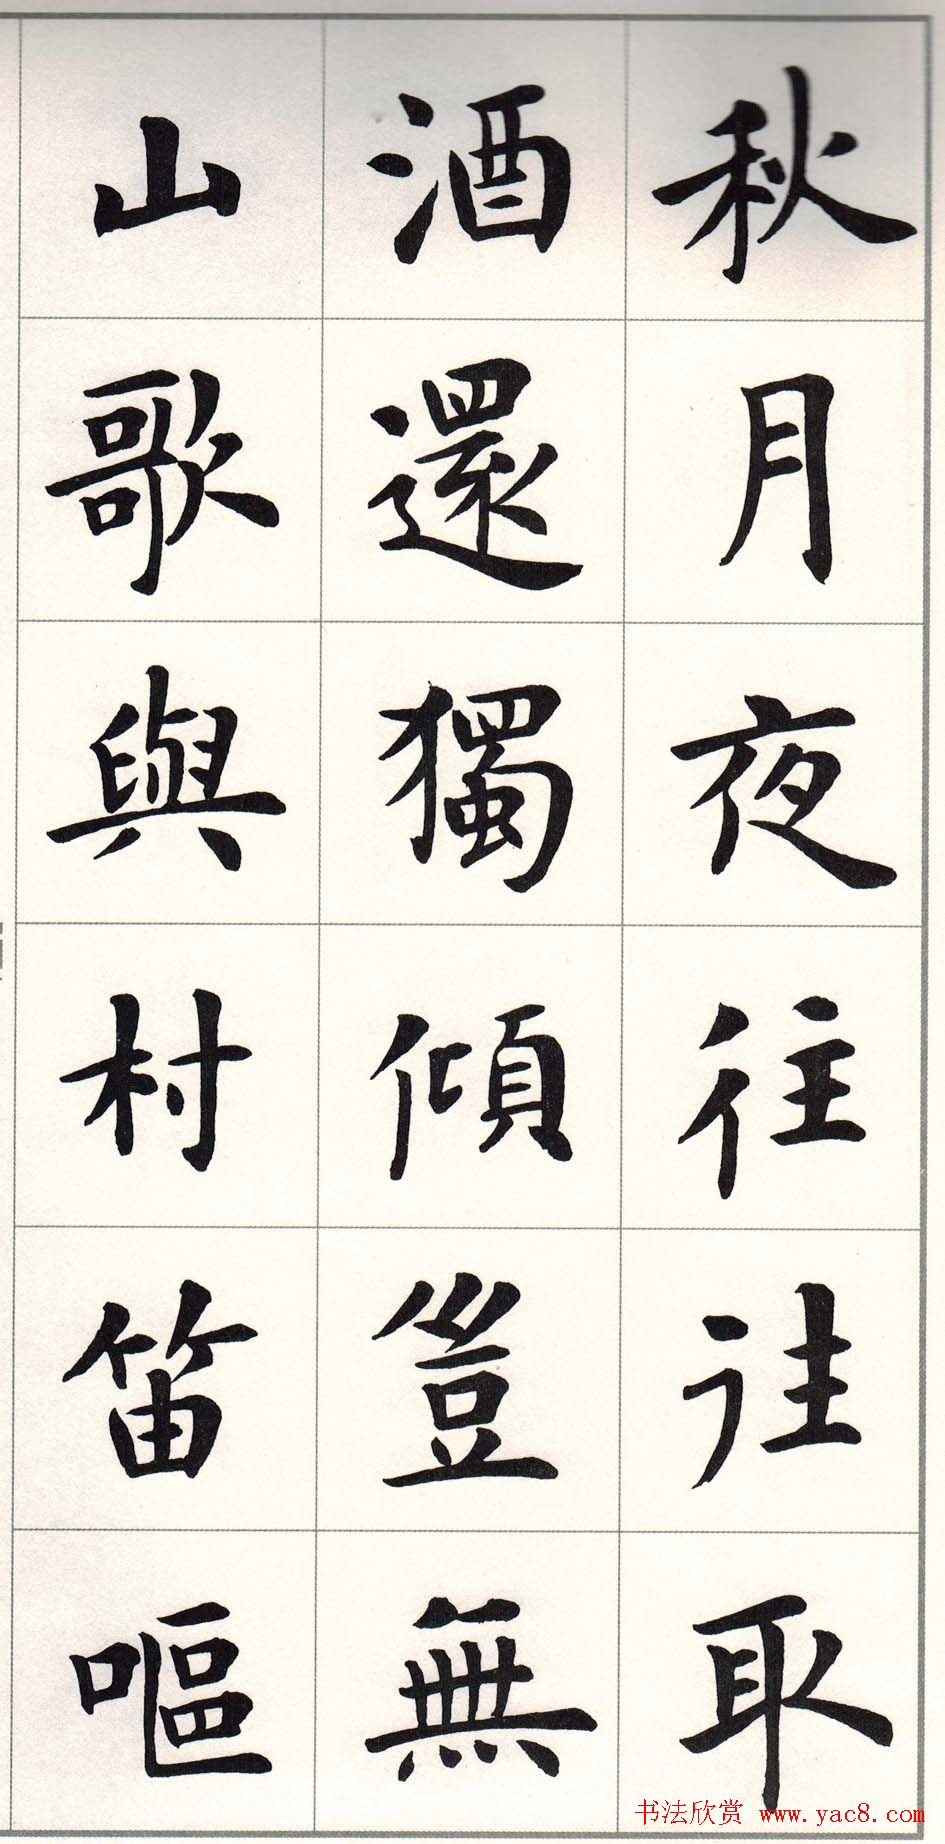 秋月夜往往取
酒還獨傾豈無
山歌與村笛嘔
书法欣赏 www.yac8.com